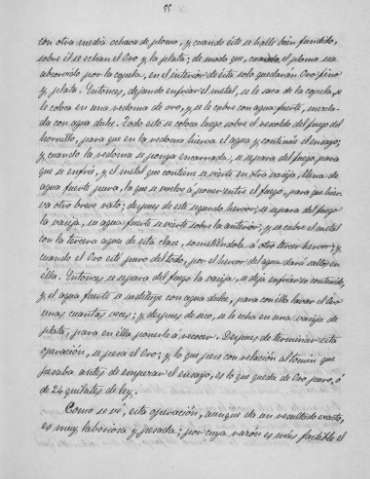 con otra media ochava de plomo, y cuando éste se halle bien fundido,
sobre él se echan el Oro y la plata; de modo que, cuando el plomo sea
absorvido por la copela, en el interior de ésta solo quedarán Oro fino
y plata. Entonces, dejando enfriar el metal, se le saca de la copela, se
le coloca en una redoma de oro, y se le cubre con agua fuerte, mezcla-
da con agua dulce. Todo esto se coloca luego sobre el rescoldo del fuego del
hornillo, para que en la redoma hierva el agua y continúe el ensayo;
y cuando la redoma se ponga encarnada, se separa del fuego para
que se enfríe, y el metal que contiene se vierte en otra vasija llena de
agua fuerte pura, la que se vuelve á poner entre el fuego, para que hier-
va otro breve rato; después de este segundo hervor, se separa del fuego
la vasija, su agua fuerte se vierte sobre la anterior; y se cubre el metal
con la tercera agua de esta clase, sometiéndole á otro tercer hervor; y
cuando el Oro esté puro del todo, por el hervor del agua dará saltos en
ella. Entonces se separa del fuego la vasija, se deja enfriar su contenido,
y el agua fuerte se sustituye con agua dulce, para con ella lavar el Oro
unas cuantas veces; y después de seco, se le echa en una vasija de
plata, para en ella ponerle á recocer. Después de terminar esta
operación, se pesa el Oro; y lo que pese con relación al tomín que
pesaba antes de empezar el ensayo, es lo que queda de Oro puro, ó
de 24 quilates de ley.
Como se vé, esta operación, aunque da un resultado exacto,
es muy laboriosa y pesada; por cuya razón es más factible el